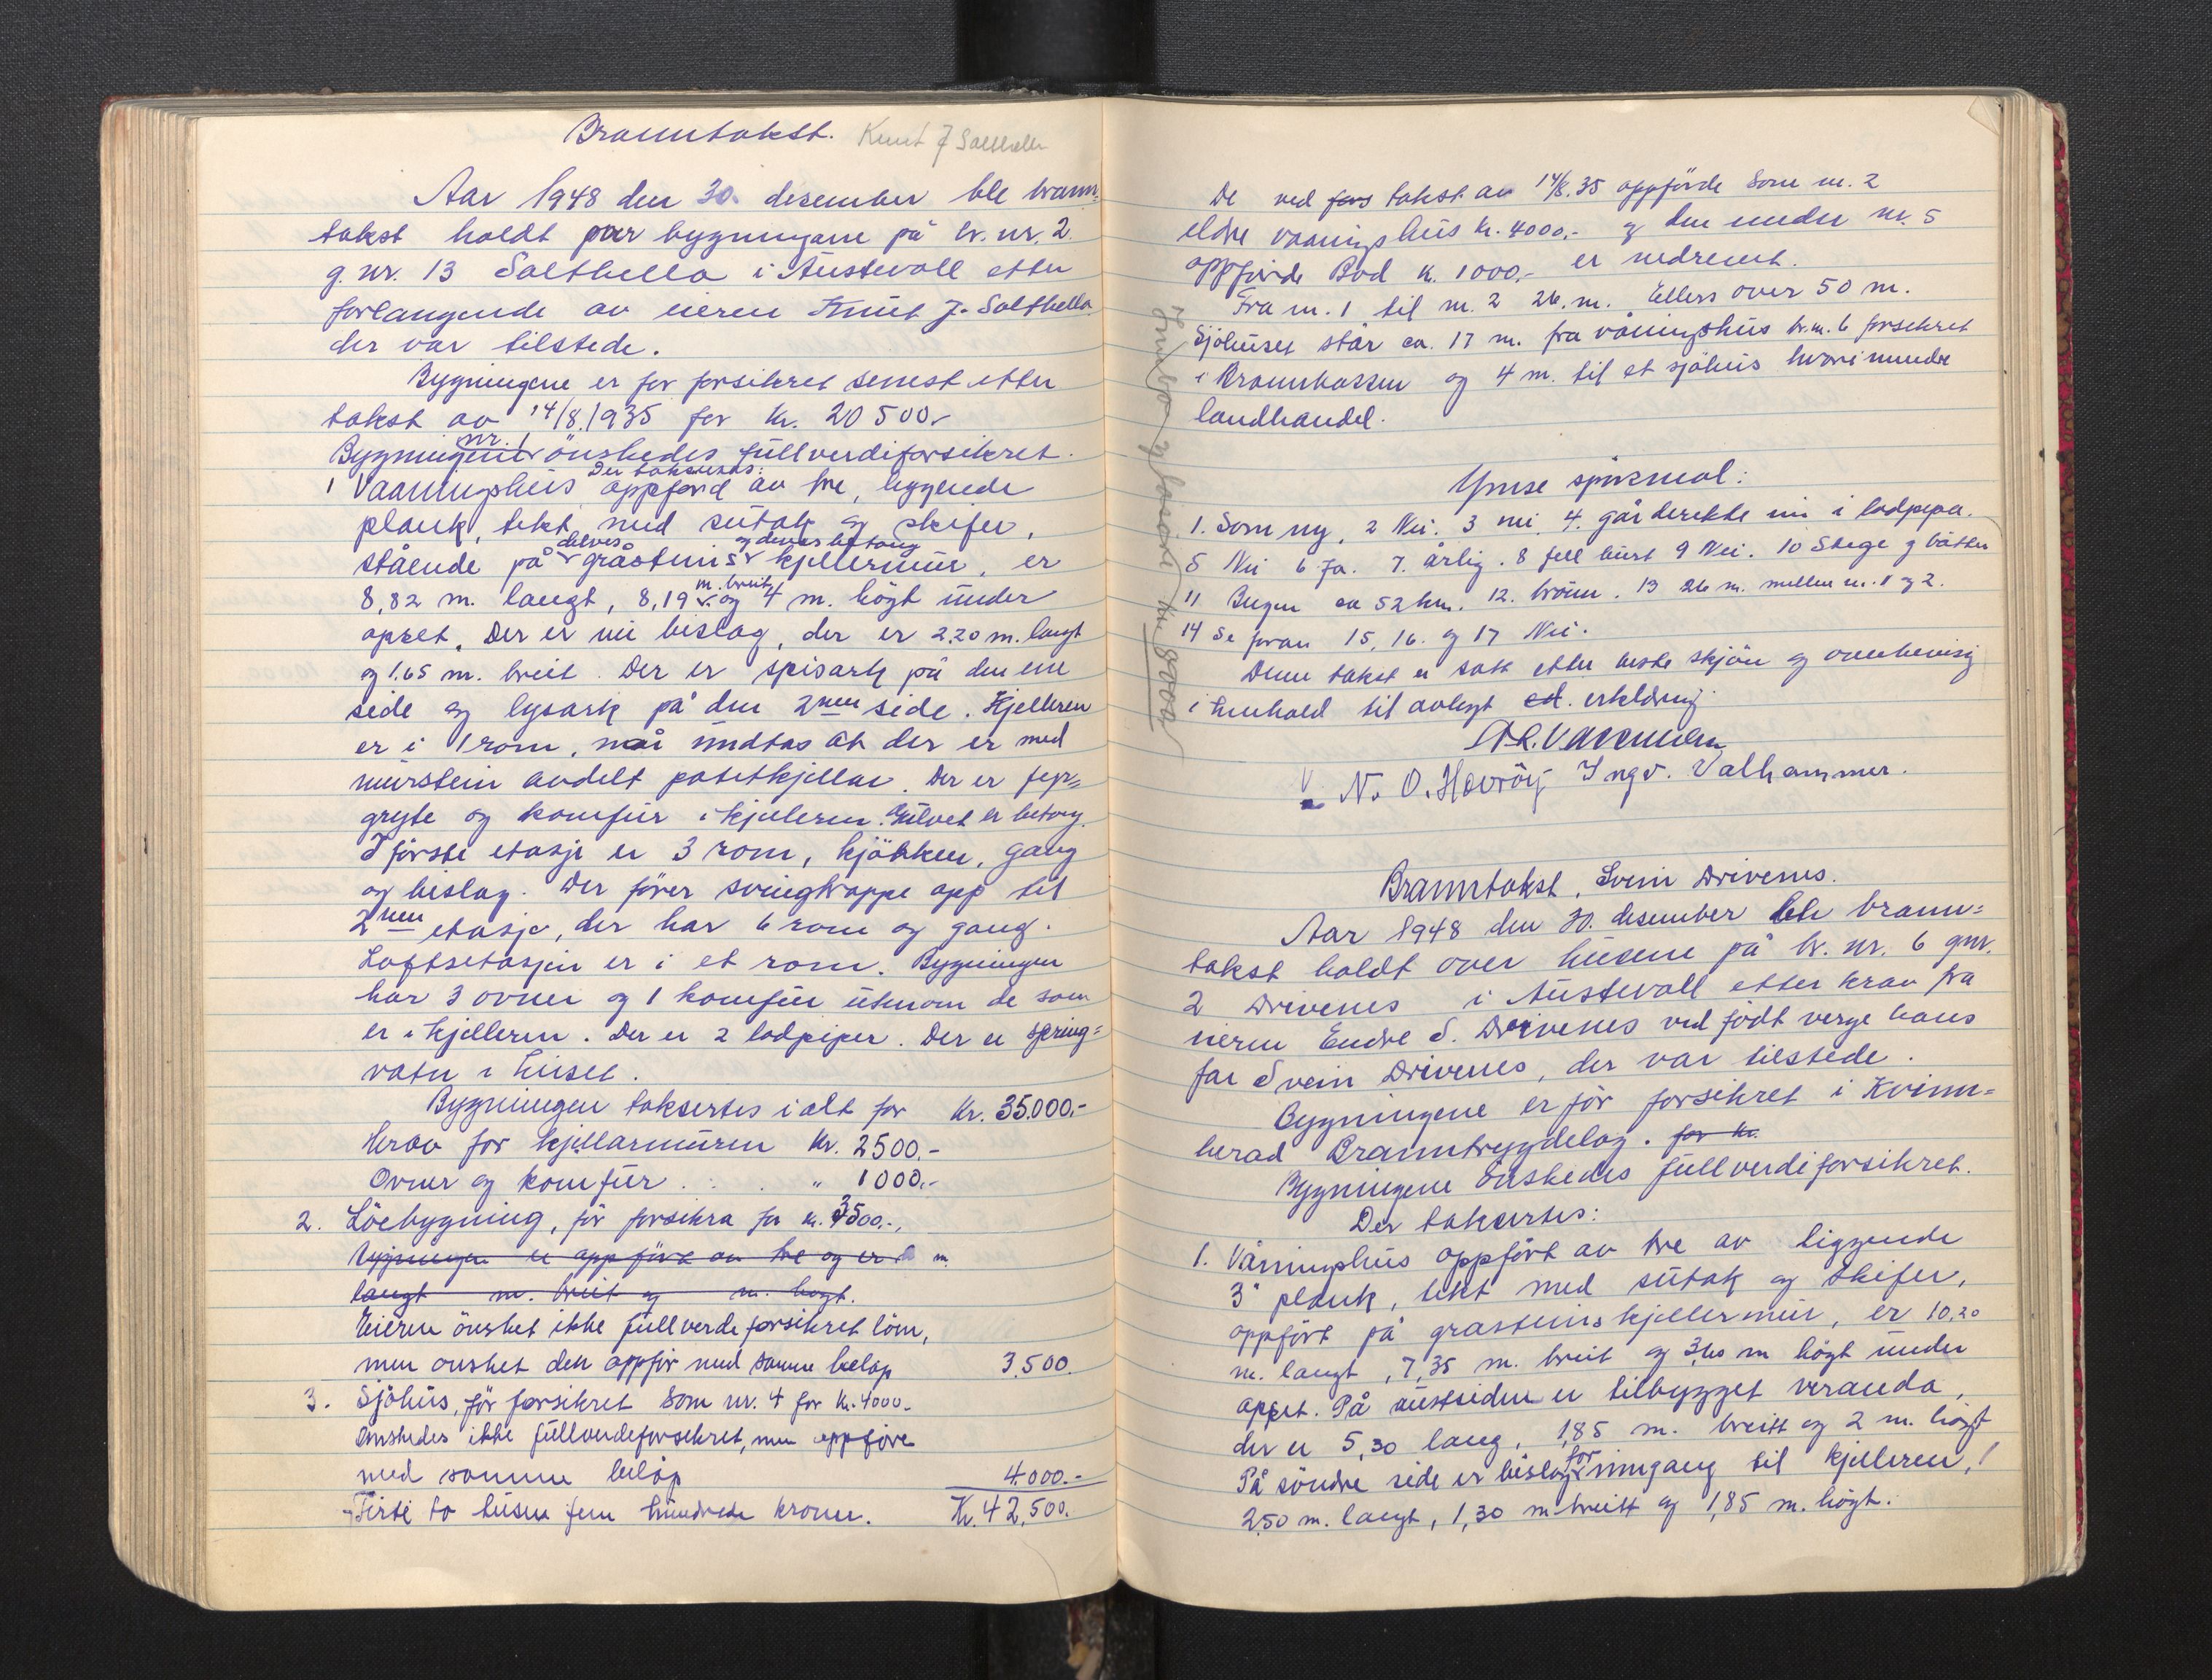 Branntakst. Knut J Salthella
Aar 1948 den 30. desember ble brann-
takst holdt over bygningane på br. nr. 2
g. nr. 13 Salthella i Austevoll etter
forlangende av eieren Knut J. Salthella
der var tilstede.
Bygningene er før forsikret senest etter
takst av 14/8.1935 for kr. 20500.-
Bygningen nr. 1 önskedes fullverdiforsikret.
Der takseres:
1 Vaaningshus oppförd av tre, liggende
plank, tekt med sutak og skifer,
stående på delves gråsteins og delves betong kjellermur, er
8,82 m. langt, 8,19 m. breit og 4 m. högt under
opset. Der er ni bislag, der er 2.20 m. langt
og 1.65 m. breit. Der er spisark på den ene
side og lysark på den 2nen side. Kjelleren
er i 1 rom, når undtas at der er med
murstein avdelt potetkjellar. Der er
gryte og komfur i kjelleren. Gulvet er betong.
I förste etasje er 3 rom, kjökken, gang
og bislag. Der förer svingtrappe opp til
2nen etasje, der har 6 rom og gang.
Loftsetasjen er i et rom. Bygningen
har 3 ovner og 1 komfur utenom de som
er i kjelleren. Der er 2 lodpiper. Der er spring-
vatn i huset.
Bygningen taksertes i alt for Kr. 35.000.-
Herav for kjellarmuren Kr. 2500.-
Ovner og komfur . . . " 1000.-
2. Löebygning, för forsikra for kr. 3500.-,
Bygningen er oppföre av tre og er m.
langt m. breit og m. högt.
Eieren önsket ikke fullverdeforsikret löen,
men onsket den oppför med samme belöp 3.500.
3. Sjöhus, för forsikret som nr. 4 for kr. 4000.-
Önskedes ikke fullverdeforsekret, men oppföre
med samme belöp 4.000.-
Firti to tusen fem hundrede kroner. Kr. 42,500.
De ved fors takst av 14/8.35 oppförde som nr. 2
eldre vaaningshus kr. 4000.- og den under nr. 5
oppförde Bod kr. 1000.- er nedrevet.
Fra nr. 1 til nr. 2 26. m. Ellers over 50 m.
Sjöhuset står ca. 17 m. fra våningshus br.nr. 6 forsekret
i Brannkassen og 4 m. til et sjöhus hvori mindre
landhandel.
Innbo kr. 8000
Ymse spörsmål:
1. Som ny, 2 Nei. 3 nei 4. går derekte inn i lodpipa.
5 Nei 6 Ja. 7. årlig. 8 fell hust 9 Nei. 10 Stege og bötter
11 Bergen ca 52 km. 12. brönn. 13 26 m. mellem nr. 1 og 2.
14 Se foran 15, 16. og 17 Nei.
Denne takst er satt etter beste skjön og overbevisning
i henhold til avlagt ed. erklæring.
N. O. Havröy Ingv. Valhammer.
Branntakst, Svein Drivenes.
Aar 1948 den 30. desember ble brann-
takst holdt over husene på br. nr. 6 gnr.
2 Drivenes i Austevoll etter krav fra
eieren Endre S. Drivenes ved födt verge hans
far Svein Drivenes, der var tilstede.
Bygningene er för forsikret i Kvinn-
herad Branntrygdelag. for kr.
Bygningene önskedes fullverdiforsikret.
Der taksertes:
1. Våningshus oppfört av tre av liggende
3" plank, tekt med sutak og skifer,
oppfört på grasteins kjellermur, er 10,20
m. langt, 7,35 m. breit og 3,60 m högt under
opset. På austsiden er tilbygget veranda,
der er 5,30 lang, 1,85 m. breitt og 2 m. högt
På söndre side er bislag for inngang til kjelleren,
2,50 m. langt, 1,30 m breitt og 1,85 m. högt.